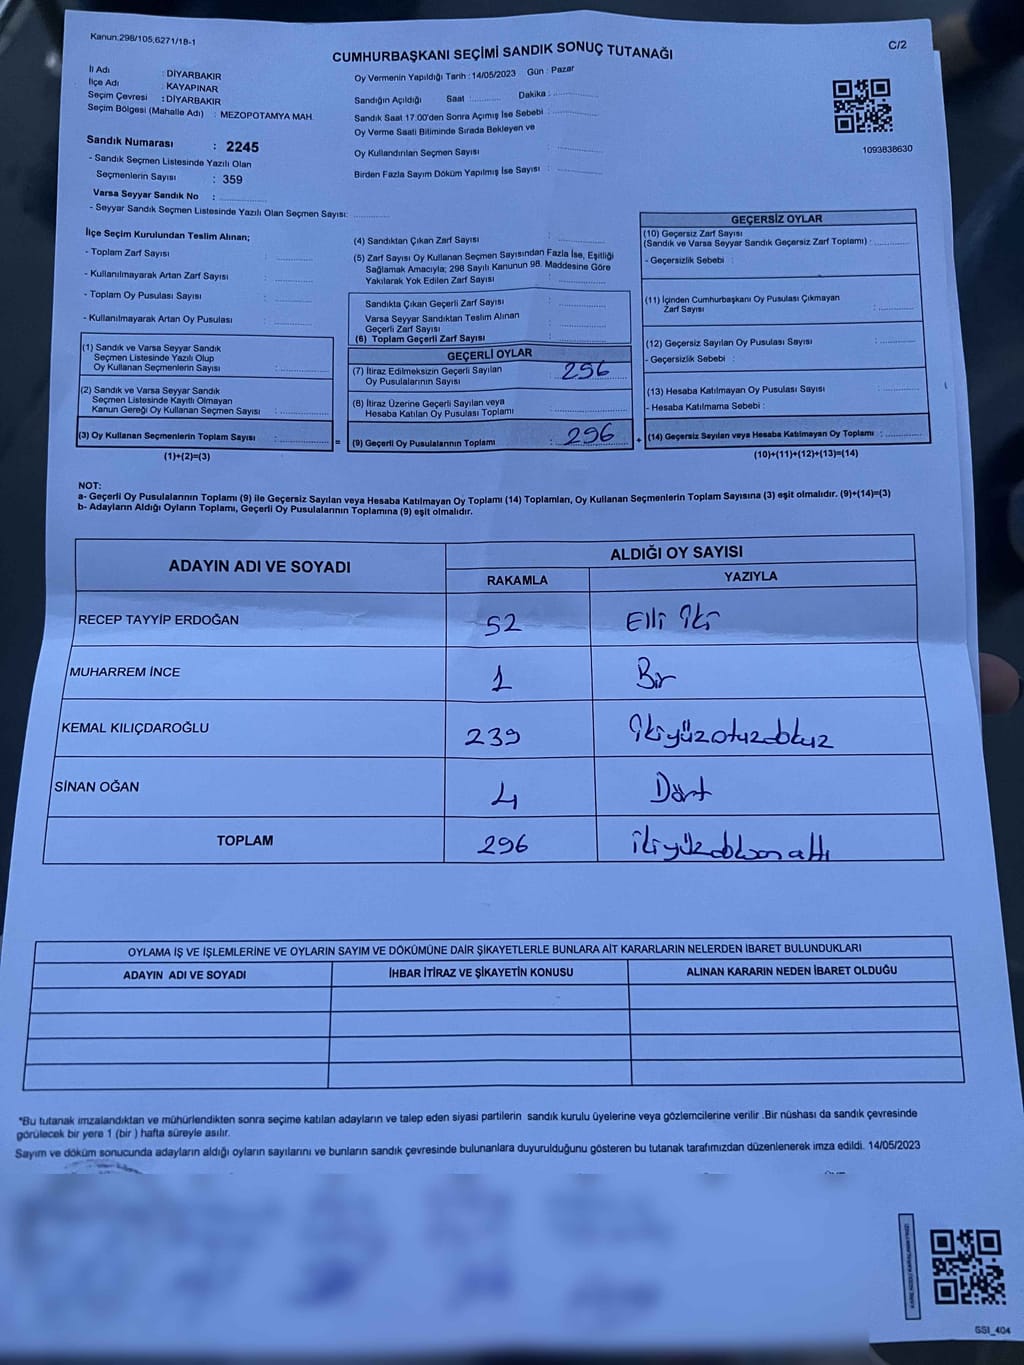 Kanun:298/105,6271/18-1
CUMHURBAŞKANI SEÇİMİ SANDIK SONUÇ TUTANAĞI
C/2
İl Adı : DİYARBAKIR
İlçe Adı : KAYAPINAR
Seçim Çevresi : DİYARBAKIR
Seçim Bölgesi (Mahalle Adı) : MEZOPOTAMYA MAH.
Oy Vermenin Yapıldığı Tarih : 14/05/2023 Gün : Pazar
Sandığın Açıldığı Saat :........... Dakika :................
Sandık Saat 17:00'den Sonra Açımış İse Sebebi :................
Oy Verme Saati Bitiminde Sırada Bekleyen ve
Oy Kullandırılan Seçmen Sayısı :................
Birden Fazla Sayım Döküm Yapılmış İse Sayısı :................
1093838630
Sandık Numarası : 2245
- Sandık Seçmen Listesinde Yazılı Olan
Seçmenlerin Sayısı : 359
Varsa Seyyar Sandık No :................
- Seyyar Sandık Seçmen Listesinde Yazılı Olan Seçmen Sayısı: ............
İlçe Seçim Kurulundan Teslim Alınan;
- Toplam Zarf Sayısı :............
- Kullanılmayarak Artan Zarf Sayısı :............
- Toplam Oy Pusulası Sayısı :............
- Kullanılmayarak Artan Oy Pusulası :............
(1) Sandık ve Varsa Seyyar Sandık
Seçmen Listesinde Yazılı Olup
Oy Kullanan Seçmenlerin Sayısı :............
(2) Sandık ve Varsa Seyyar Sandık
Seçmen Listesinde Kayıtlı Olmayan
Kanun Gereği Oy Kullanan Seçmen Sayısı :............
(3) Oy Kullanan Seçmenlerin Toplam Sayısı :............
(1)+(2)=(3)
=
(4) Sandıktan Çıkan Zarf Sayısı :............
(5) Zarf Sayısı Oy Kullanan Seçmen Sayısından Fazla İse, Eşitliği
Sağlamak Amacıyla; 298 Sayılı Kanunun 98. Maddesine Göre
Yakılarak Yok Edilen Zarf Sayısı :............
Sandıkta Çıkan Geçerli Zarf Sayısı :............
Varsa Seyyar Sandıktan Teslim Alınan
Geçerli Zarf Sayısı :............
(6) Toplam Geçerli Zarf Sayısı
GEÇERLİ OYLAR
(7) İtiraz Edilmeksizin Geçerli Sayılan
Oy Pusulalarının Sayısı : 296
(8) İtiraz Üzerine Geçerli Sayılan veya
Hesaba Katılan Oy Pusulası Toplamı :............
(9) Geçerli Oy Pusulalarının Toplamı : 296
+
GEÇERSİZ OYLAR
(10) Geçersiz Zarf Sayısı
(Sandık ve Varsa Seyyar Sandık Geçersiz Zarf Toplamı) :............
- Geçersizlik Sebebi :
(11) İçinden Cumhurbaşkanı Oy Pusulası Çıkmayan
Zarf Sayısı :............
(12) Geçersiz Sayılan Oy Pusulası Sayısı :............
- Geçersizlik Sebebi :
(13) Hesaba Katılmayan Oy Pusulası Sayısı :............
- Hesaba Katılmama Sebebi :
(14) Geçersiz Sayılan veya Hesaba Katılmayan Oy Toplamı :............
(10)+(11)+(12)+(13)=(14)
NOT:
a- Geçerli Oy Pusulalarının Toplamı (9) ile Geçersiz Sayılan veya Hesaba Katılmayan Oy Toplamı (14) Toplamları, Oy Kullanan Seçmenlerin Toplam Sayısına (3) eşit olmalıdır. (9)+(14)=(3)
b- Adayların Aldığı Oyların Toplamı, Geçerli Oy Pusulalarının Toplamına (9) eşit olmalıdır.
ADAYIN ADI VE SOYADI
ALDIĞI OY SAYISI
RAKAMLA YAZIYLA
RECEP TAYYİP ERDOĞAN 52 Elli iki
MUHARREM İNCE 1 Bir
KEMAL KILIÇDAROĞLU 239 ikiyüzotuzdokuz
SİNAN OĞAN 4 Dört
TOPLAM 296 ikiyüzdoksanaltı
OYLAMA İŞ VE İŞLEMLERİNE VE OYLARIN SAYIM VE DÖKÜMÜNE DAİR ŞİKAYETLERLE BUNLARA AİT KARARLARIN NELERDEN İBARET BULUNDUKLARI
ADAYIN ADI VE SOYADI İHBAR İTİRAZ VE ŞİKAYETİN KONUSU ALINAN KARARIN NEDEN İBARET OLDUĞU
*Bu tutanak imzalandıktan ve mühürlendikten sonra seçime katılan adayların ve talep eden siyasi partilerin sandık kurulu üyelerine veya gözlemcilerine verilir .Bir nüshası da sandık çevresinde
görülecek bir yere 1 (bir ) hafta süreyle asılır.
Sayım ve döküm sonucunda adayların aldığı oyların sayılarını ve bunların sandık çevresinde bulunanlara duyurulduğunu gösteren bu tutanak tarafımızdan düzenlenerek imza edildi. 14/05/2023
GSI_404